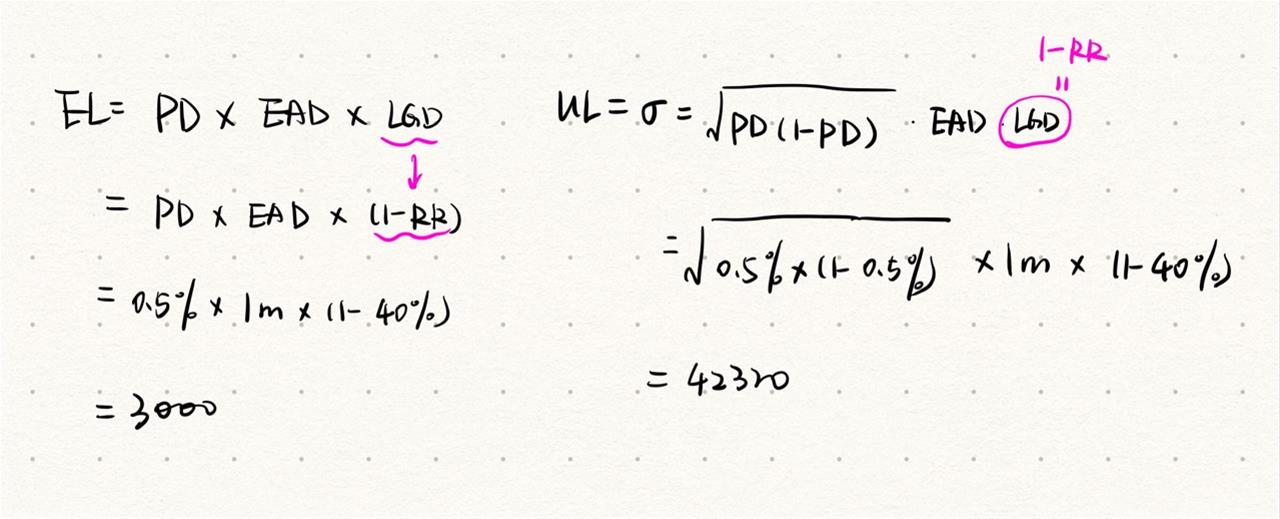 EL = PD × EAD × LGD
↓
= PD × EAD × (1-RR)
= 0.5% × 1m × (1- 40%)
= 3000
1-RR
=
UL = σ = √PD(1-PD) · EAD · LGD
= √0.5% × (1- 0.5%) × 1m × (1- 40%)
= 42320